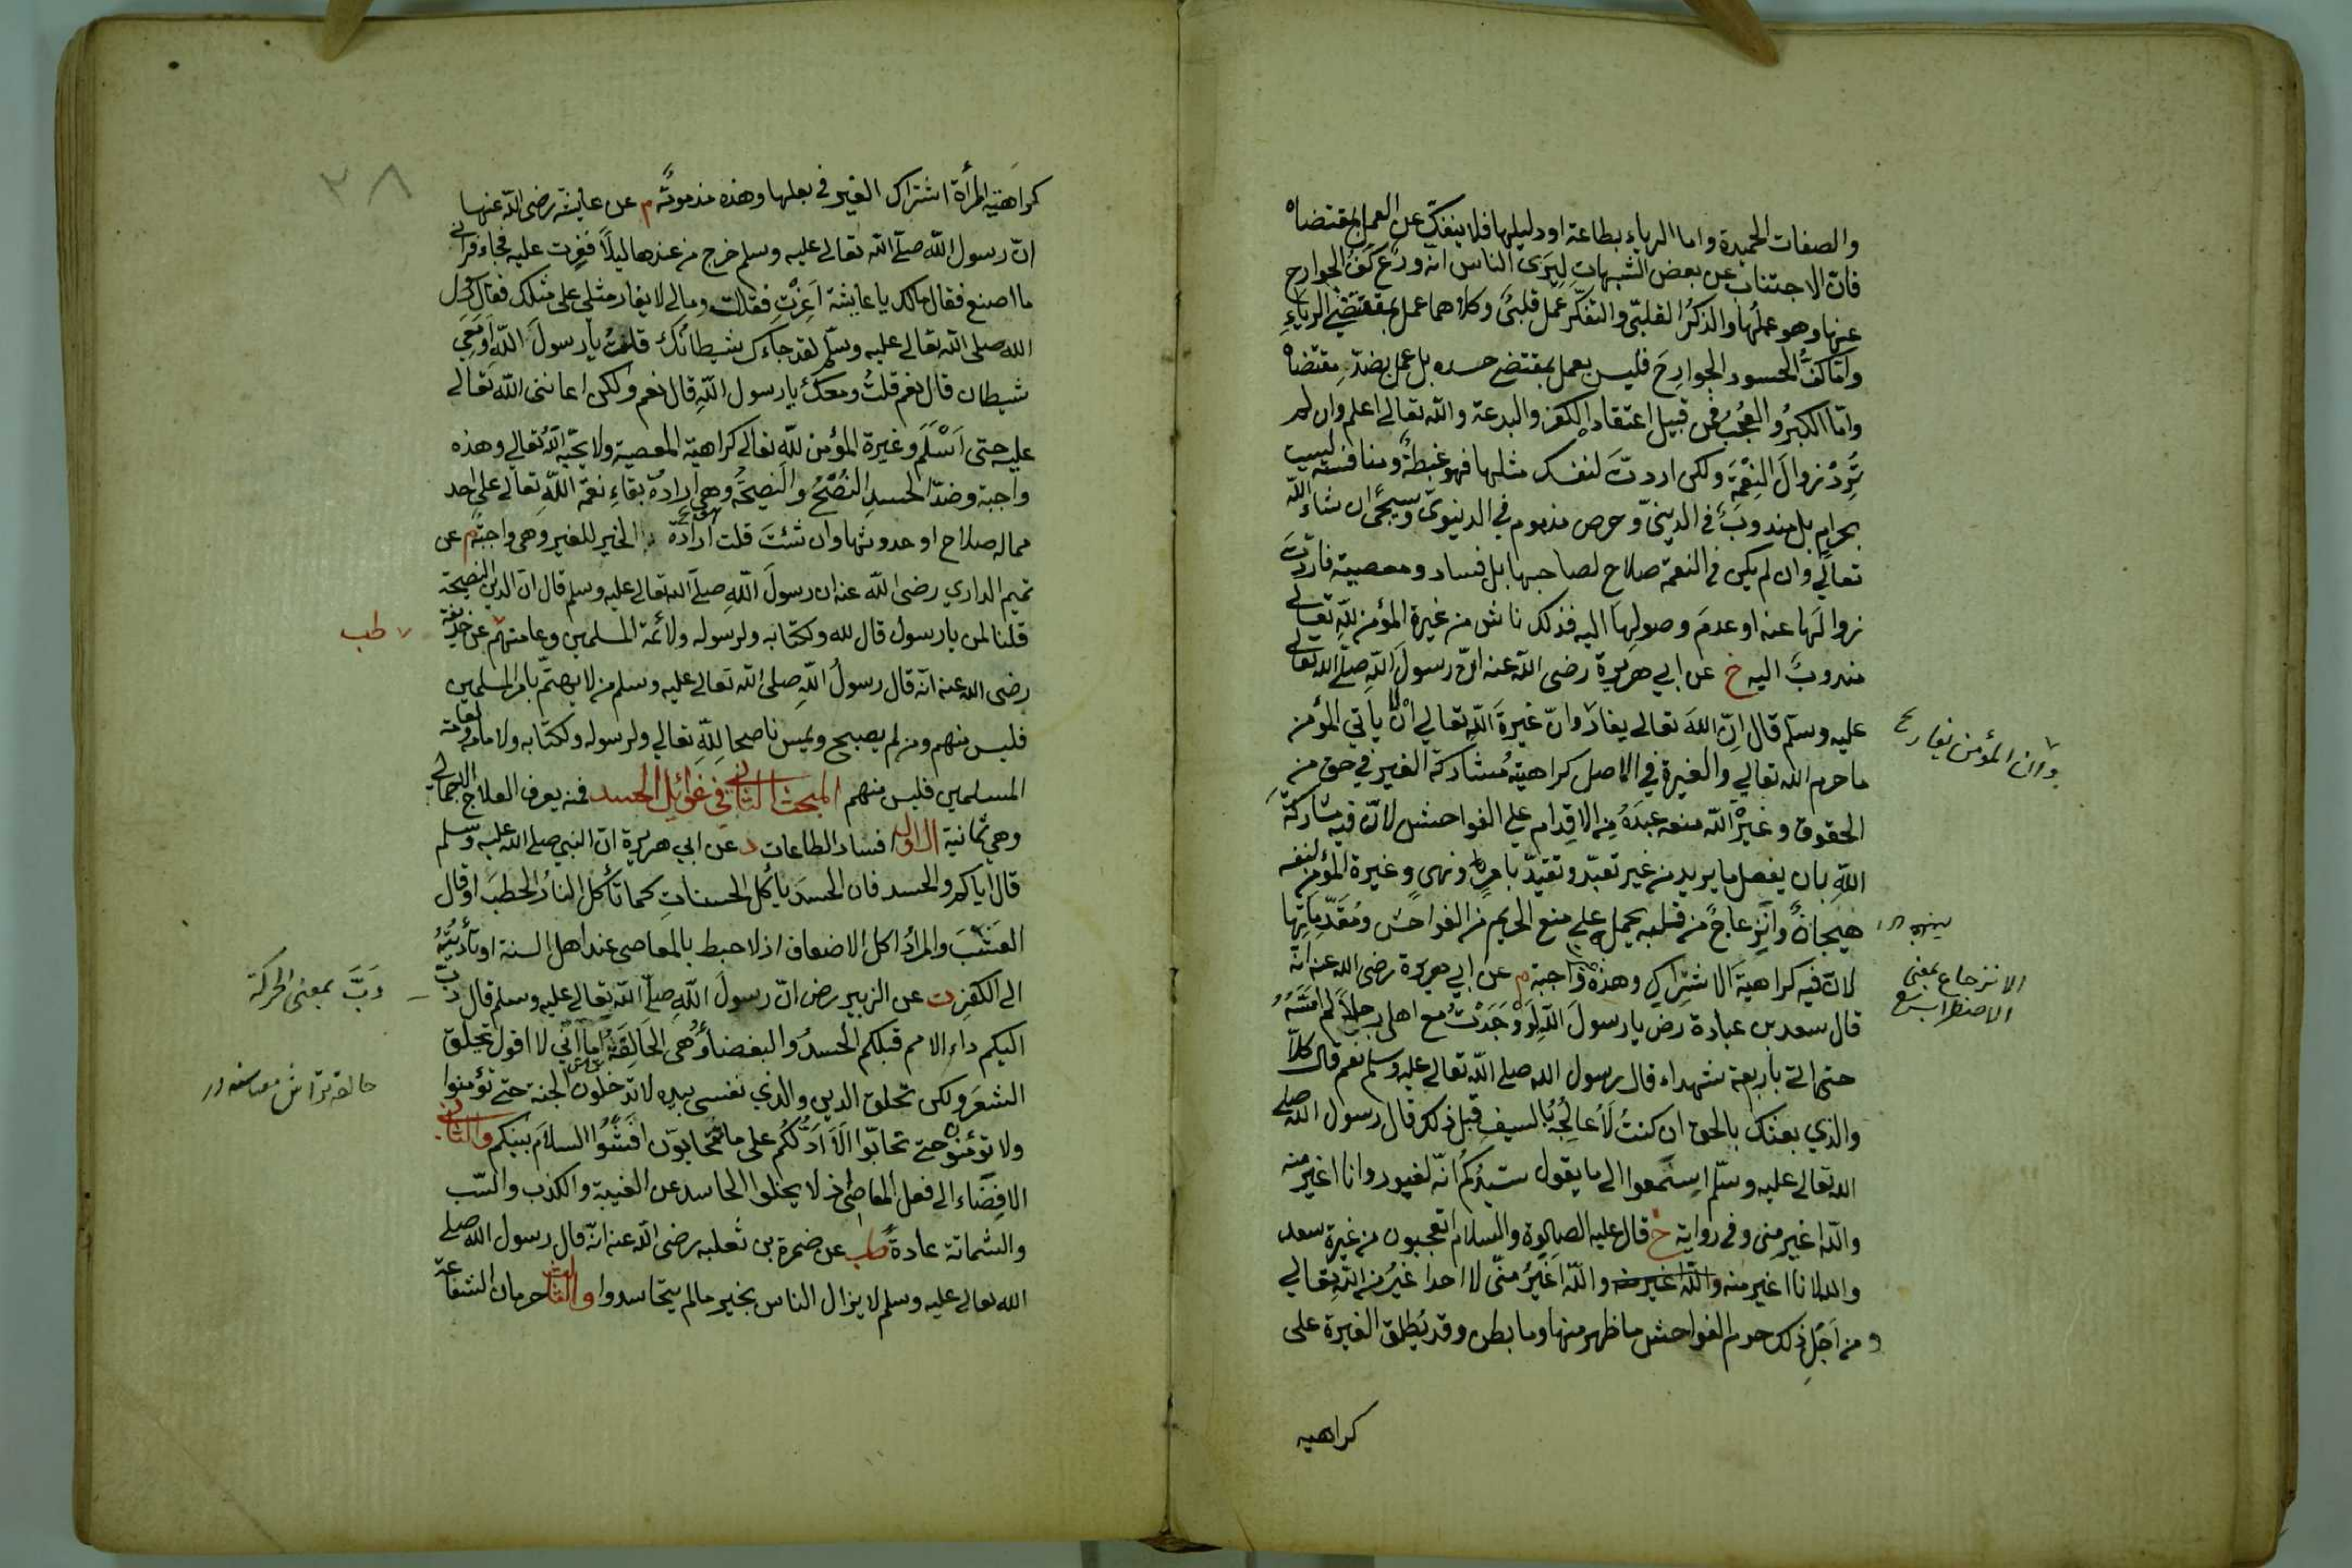 والصفات الحميدة واما الرياء بطاعة او دليلها فلا ينفك عن العمل بمقتضاه
فان الاجتناب عن بعض الشبهات لِيَرَى الناس انه ورع كفّ الجوارح
عنها وهو عملها والذكرُ القلبيّ والتفكّر عمل قلبيّ وكلاهما عمل بمقتضى الرياءِ
وامّا كفُّ الحسود الجوارحَ فليس بعمل بمقتضى حسده بل عمل بضدّ مقتضاه
وامّا الكبرُ والعُجبُ فمن قبيل اعتقاد الكفر والبدعة والله تعالى اعلم وان لم
تُرِدْ زوالَ النِعْمَةِ ولكن اردتَ لنفسك مثلها فهو غبطةٌ ومنافسة ليست
بحرام بل مندوب في الدينىّ وحرص مذموم في الدنيوىّ وسيجئ ان شاء الله
تعالى وان لم يكن في النعمة صلاح لصاحبها بل فساد ومعصية فاردتَ
زوالَها عنه او عدمَ وصولِها اليه فذلك ناش من غيرة المؤمن لله تعالى
مندوبٌ اليه خ عن ابي هريرة رضى الله عنه انّ رسولَ اللهِ صلى الله تعالى
عليه وسلّم قال اِنّ اللهَ تعالى يغار وانّ غيرةَ اللهِ تعالي اَنْ لا يأتي المؤمن
وان المؤمن يغار
ما حرم الله تعالي والغيرة في الاصل كراهيةُ مُشاركة الغير في حق من
الحقوق وغيرةُ الله منعه عبدَهُ من الاقدام علي الفواحش لانّ فيه مشاركة
اللهِ بان يفعل ما يريد من غير تعبّد وتقيّد بامرٍ ونهى وغيرة المؤمن لنفسه
هيجانٌ وانزعاجٌ من قلبه يحمل على منع الحريم من الفواحش ومُقَدِّماتِها
لانّ فيه كراهيةَ الاشتراكِ وهذه واجبة م عن ابي هريرة رضى الله عنه انّه
الانزعاج بمعنى
الاضطراب
قال سعد بن عبادة رض يا رسولَ اللهِ لَوْ وَجَدْتُ مع اهلى رجلاً لم اَمَسَّهُ
حتى اتي باربعة شهداء قال رسول الله صلى الله تعالى عليه وسلم نعم قال كلاّ
والذي بعثك بالحق ان كنتُ لَاُعاجِلُهُ بالسيف قبل ذلك قال رسول الله صلى
الله تعالى عليه وسلّم اِستَمعوا الى ما يقول سَيّدُكم انّه لغيور وانا اغير منه
والله اغير منى وفى رواية خ قال عليه الصلوة والسلام اتعجبون من غيرة سعد
والله لانا اغير منه والله اغير منه والله اَغيَرُ منّى لا احد اغيرُ من الله تعالي
ومن اَجْلِ ذلك حرم الفواحش ما ظهر منها وما بطن وقد يُطلق الغيرة على
كراهية
٣٨
كراهَية المرأة اشتراكَ الغير في بعلها وهذه مذمومةٌ م عن عايشة رضى الله عنها
انّ رسول اللهِ صلى الله تعالى عليه وسلم خرج من عندها ليلاً فغِرت عليه فجاء فرأى
ما اصنع فقال مالك يا عايشة اَغِرْتِ فقلت ومالى لا يغار مثلي على مثلك فقال رسول
الله صلى الله تعالى عليه وسلّم لقد جاءك شيطانُك قلتُ يا رسولَ الله اَوَمَعِي
شيطان قال نعم قلتُ ومعك يا رسول اللهِ قال نعم ولكن اعاننى الله تعالى
عليه حتى اَسْلَمَ وغيرة المؤمن لله تعالى كراهية المعصية ولا يحبّه الله تعالى وهذه
واجبة وضدّ الحسدِ النُصْحُ والنصيحةُ وهى ارادة بقاءِ نعمة الله تعالى على احد
مما له صلاح او حدوثها وان شئتَ قلت ارادة الخير للغير وهى واجبة م عن
تميم الداري رضى الله عنه ان رسولَ اللهِ صلى الله تعالى عليه وسلم قال انّ الدين النصيحة
قلنا لمن يا رسول قال لله ولكتابه ولرسوله ولائمة المسلمين وعامتهم عن حذيفة
طب
رضى الله عنه انّه قال رسولُ اللهِ صلى الله تعالى عليه وسلم من لا يهتمّ بامر المسلمين
فليس منهم ومن لم يصبح ويمس ناصحا للهِ تعالي ولرسوله ولكتابه ولامامه ولعامة
المسلمين فليس منهم المبحث الثانى في غوائل الحسد فمنه يعرف العلاج الاجمالى
وهي ثمانية الاول افساد الطاعات د عن ابي هريرة ان النبي صلى الله عليه وسلم
قال اياكم والحسد فان الحسدَ يأكُل الحسناتِ كما تأكل النارُ الحطبَ او قال
العشبَ والمرادُ اكل الاضعاف اذ لا حبط بالمعاصى عند اهل السنة او تأديتُهُ
الى الكفر ت عن الزبير رض انّ رسولَ اللهِ صلّى الله تعالى عليه وسلم قال دبّ
دَبَّ بمعنى الحركة
اليكم داء الامم قبلكم الحسدُ والبغضاءُ وهُى الحَالِقَةُ اما انّي لا اقول تحلق
الشعرَ ولكن تحلق الدين والذي نفسى بيده لا تدخلون الجنة حتى تؤمنوا
ولا تؤمنوا حتى تحابّوا اَلاَ اَدُلُّكُم على ما تتحابّون افشُوا السلامَ بينكم والثانى
الافضاء الى فعل المعاصى اذ لا يخلوا الحاسد عن الغيبة والكذب والسّب
والشماتة عادةً طب عن ضمرة بن ثعلبه رضى الله عنه انّه قال رسول الله صلى
الله تعالى عليه وسلم لا يزال الناس بخير ما لم يتحاسدوا والثالث حرمان الشفاعة